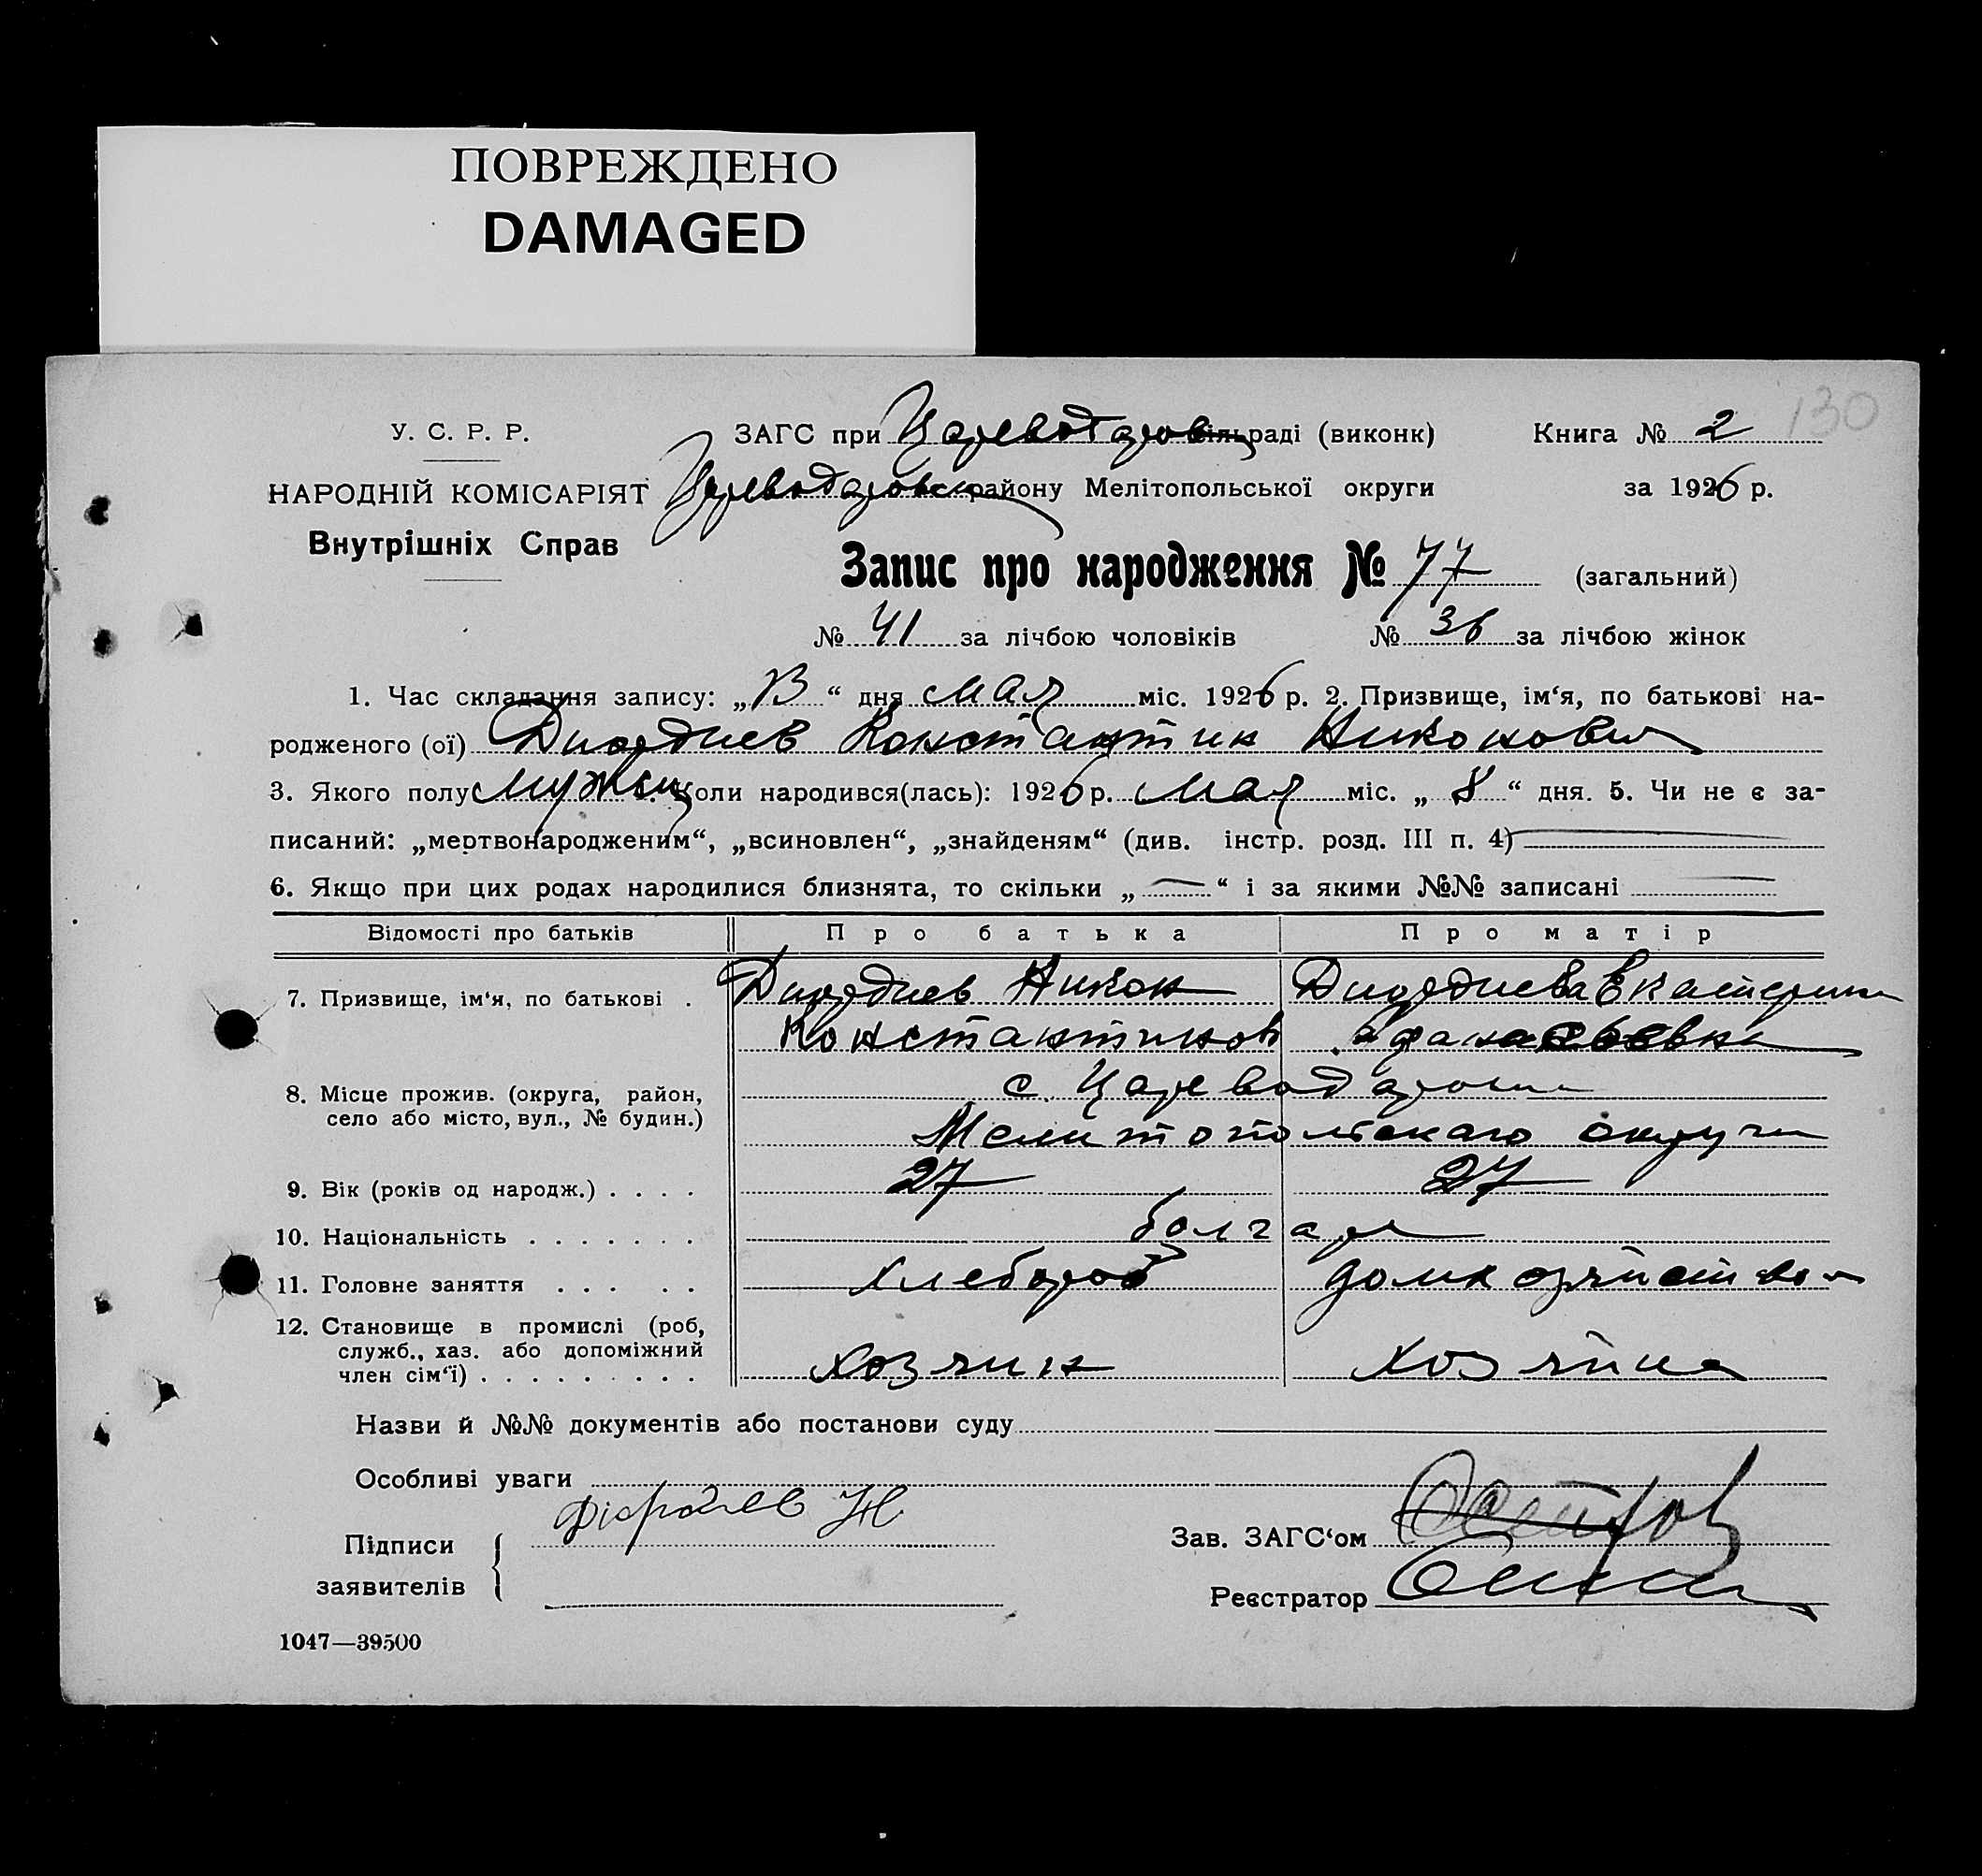 ПОВРЕЖДЕНО
DAMAGED
130
У. С. Р. Р.
ЗАГС при Цареводаров сільраді (виконк) Книга № 2
НАРОДНІЙ КОМІСАРІЯТ Цареводаровск району Мелітопольської округи за 1926 р.
Внутрішніх Справ
Запис про народження № 77 (загальний)
№ 41 за лічбою чоловіків № 36 за лічбою жінок
1. Час складання запису: „13“ дня мая міс. 1926 р. 2. Призвище, ім‘я, по батькові на-
родженого (ої) Диордиев Константин Никонович
3. Якого полу мужск 4. Коли народився(лась): 1926 р. мая міс. „8“ дня. 5. Чи не є за-
писаний: „мертвонародженим“, „всиновлен“, „знайденям“ (див. інстр. розд. III п. 4)
6. Якщо при цих родах народилися близнята, то скільки „—“ і за якими №№ записані —
Відомості про батьків Про батька Про матір
7. Призвище, ім‘я, по батькові . Диордиев Никон Диордиева Екатерина
Константинов Афанасьевна
8. Місце прожив. (округа, район, с. Цареводаровка
село або місто, вул., № будин.) Мелитопольскаго округи
9. Вік (років од народж.) . . . . 27 27
10. Національність . . . . . . . болгаре
11. Головне заняття . . . . . хлебороб домхозяйством
12. Становище в промислі (роб,
служб., хаз. або допоміжний хозяин хозяйка
член сім‘ї) . . . . . . . . .
Назви й №№ документів або постанови суду
Особливі уваги
Підписи Діордіев Н
заявителів
Зав. ЗАГС‘ом
Реєстратор
1047—39500